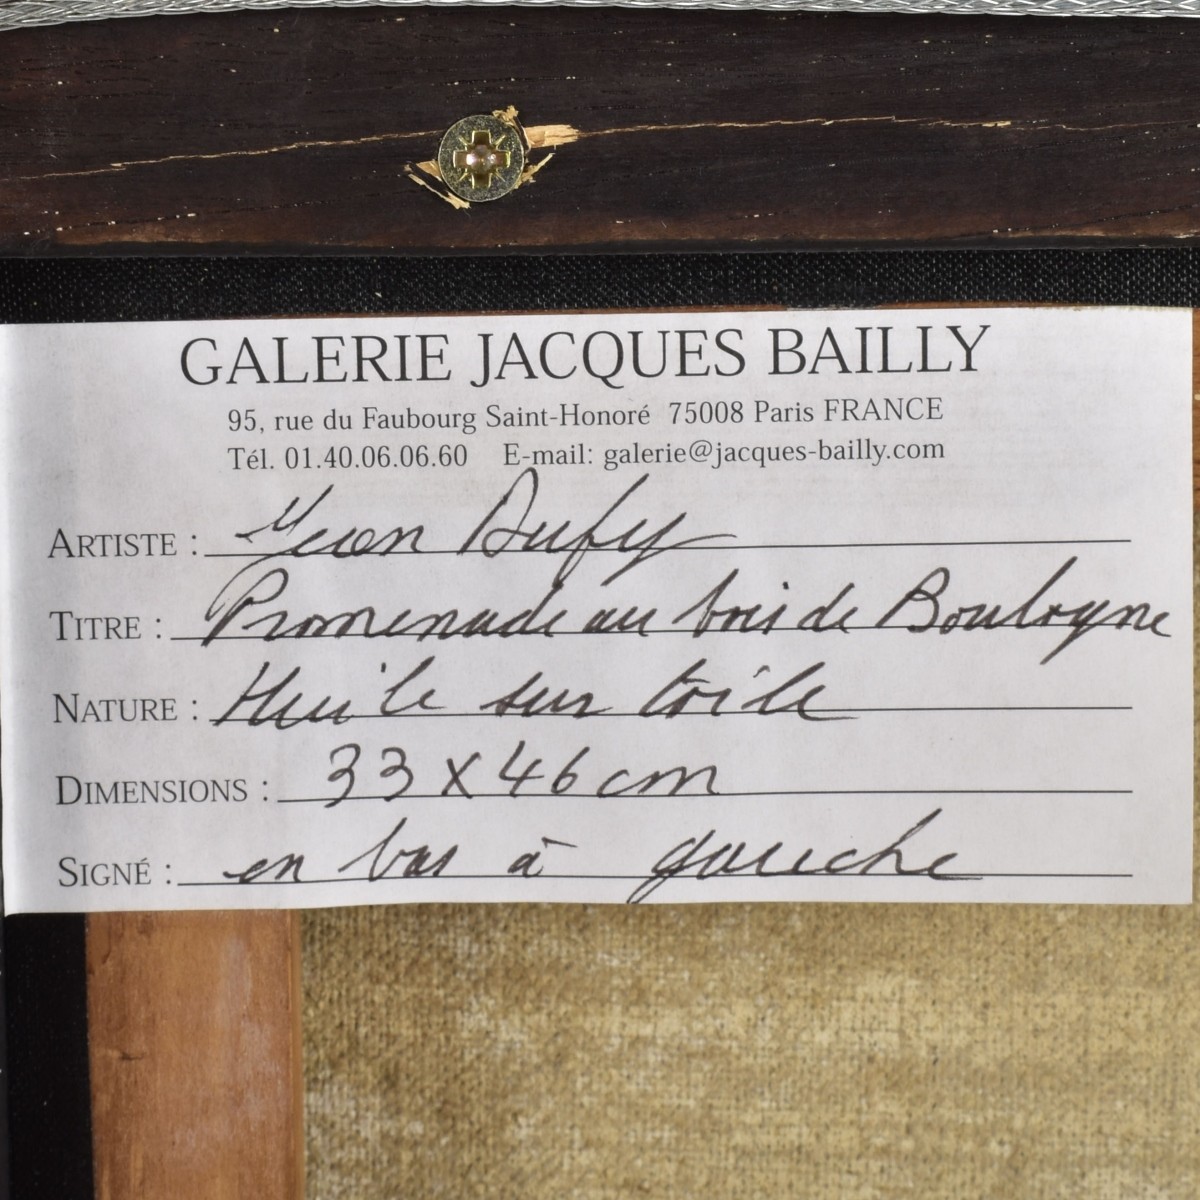 GALERIE JACQUES BAILLY
95, rue du Faubourg Saint-Honoré 75008 Paris FRANCE
Tél. 01.40.06.06.60 E-mail: galerie@jacques-bailly.com
ARTISTE : Jean Dufy
TITRE : Promenade au bois de Boulogne
NATURE : Huile sur toile
DIMENSIONS : 33 x 46 cm
SIGNÉ : en bas à gauche